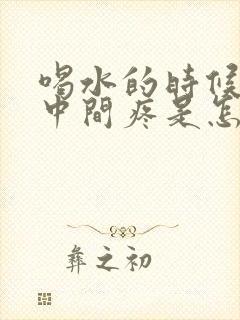 喝水的時候
中間疼是怎
彝之初